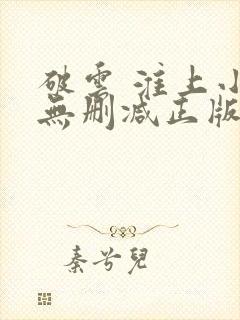 破雲 淮上小
無刪减正版
秦兮兒